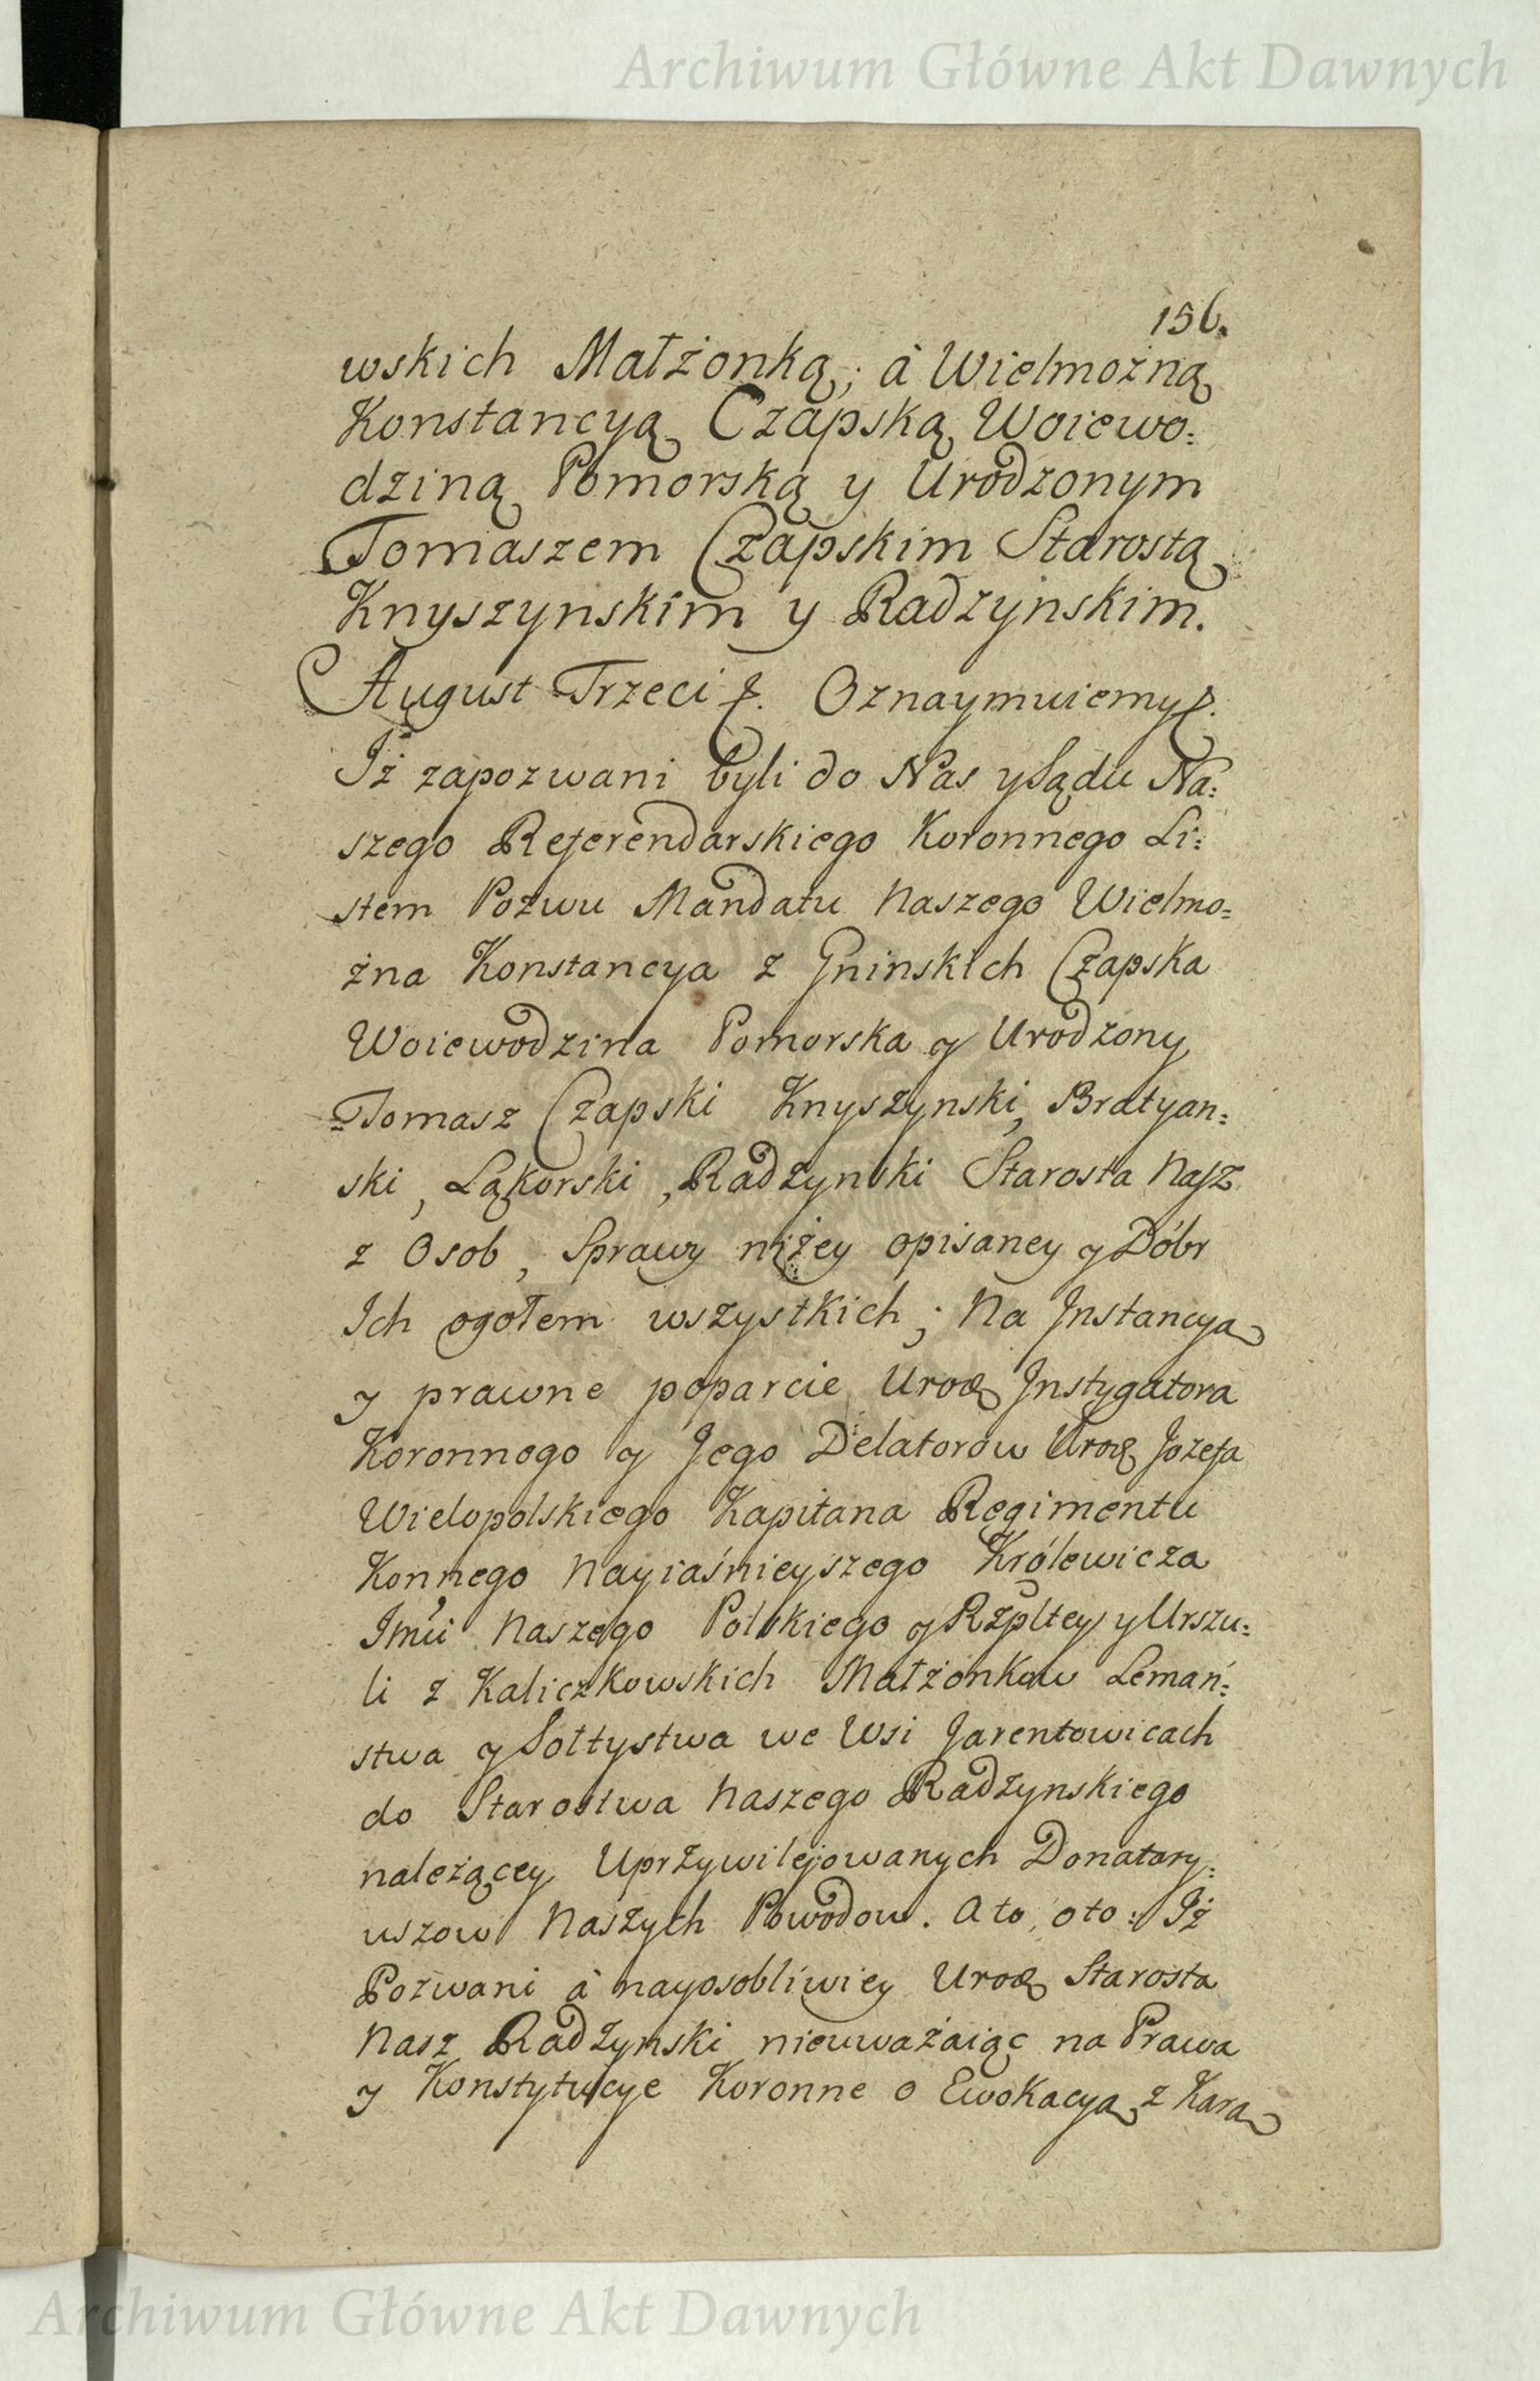 Archiwum Główne Akt Dawnych
156.
wskich Małżonką; à Wielmożną
Konstancyą Czapską Woiewo:
dziną Pomorską y Urodzonym
Tomaszem Czapskim Starostą
Knyszynskim y Radzynskim.
August Trzeci &. Oznaymuiemy &.
Iż zapozwani byli do Nas y Sądu Na:
szego Referendarskiego Koronnego Li:
stem Pozwu Mandatu Naszego Wielmo:
żna Konstancya z Gninskich Czapska
Woiewodzina Pomorska y Urodzony
Tomasz Czapski Knyszynski, Bratyan:
ski, Ląkorski, Radzynski Starosta Nasz
z Osob, Sprawy niżey opisaney y Dóbr
Ich ogołem wszystkich; Na Instancyą
y prawne poparcie Urod Instygatora
Koronnego y Jego Delatorów Urod Jozefa
Wielopolskiego Kapitana Regimentu
Konnego Nayiaśnieyszego Królewicza
Imci Naszego Polskiego y Rzpltey y Urszu:
li z Kaliczkowskich Małżonkow Lemań:
stwa y Sołtystwa we Wsi Jarentowicach
do Starostwa Naszego Radzynskiego
należącey Uprzywilejowanych Donatary:
uszow Naszych Powodow. A to, oto: Iż
Pozwani à nayosobliwiey Urod Starosta
Nasz Radzynski nieuważaiąc na Prawa
y Konstytucye Koronne o Ewokacyą z Karą
Archiwum Główne Akt Dawnych